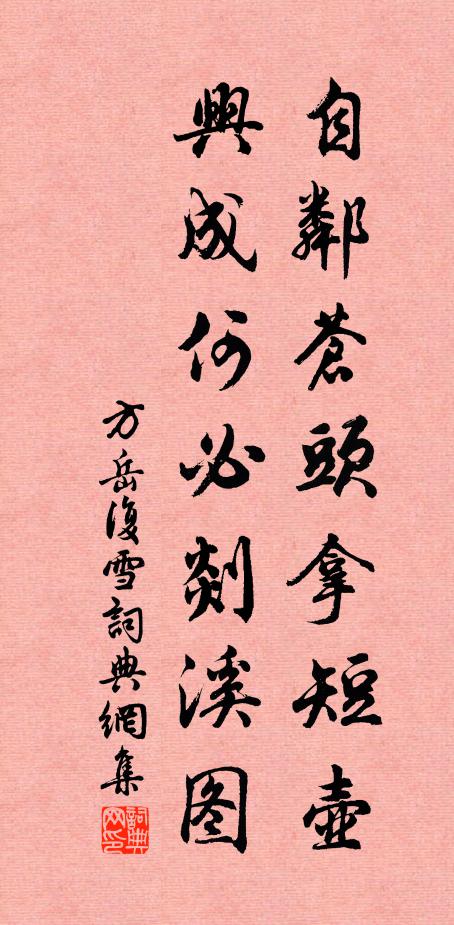 自鄰蒼頭拿短壺
興成何必剡溪图
方岳復雪詞典網集
詞典网印